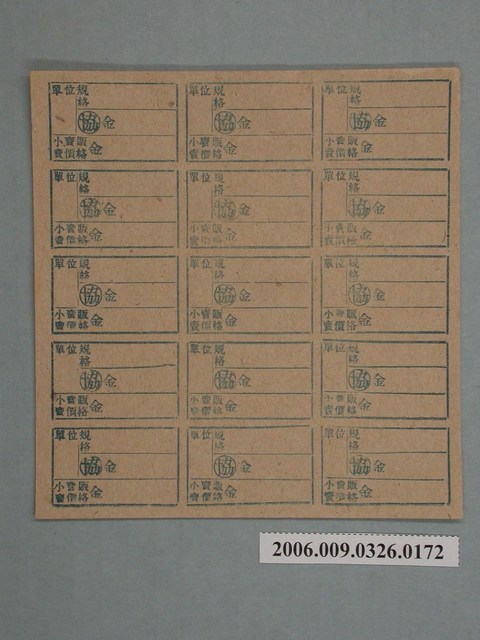 單位 規格 單位 規格 單位 規格
協 金 協 金 協 金
小賣販賣價格 金 小賣販賣價格 金 小賣販賣價格 金
單位 規格 單位 規格 單位 規格
協 金 協 金 協 金
小賣販賣價格 金 小賣販賣價格 金 小賣販賣價格 金
單位 規格 單位 規格 單位 規格
協 金 協 金 協 金
小賣販賣價格 金 小賣販賣價格 金 小賣販賣價格 金
單位 規格 單位 規格 單位 規格
協 金 協 金 協 金
小賣販賣價格 金 小賣販賣價格 金 小賣販賣價格 金
單位 規格 單位 規格 單位 規格
協 金 協 金 協 金
小賣販賣價格 金 小賣販賣價格 金 小賣販賣價格 金
2006.009.0326.0172